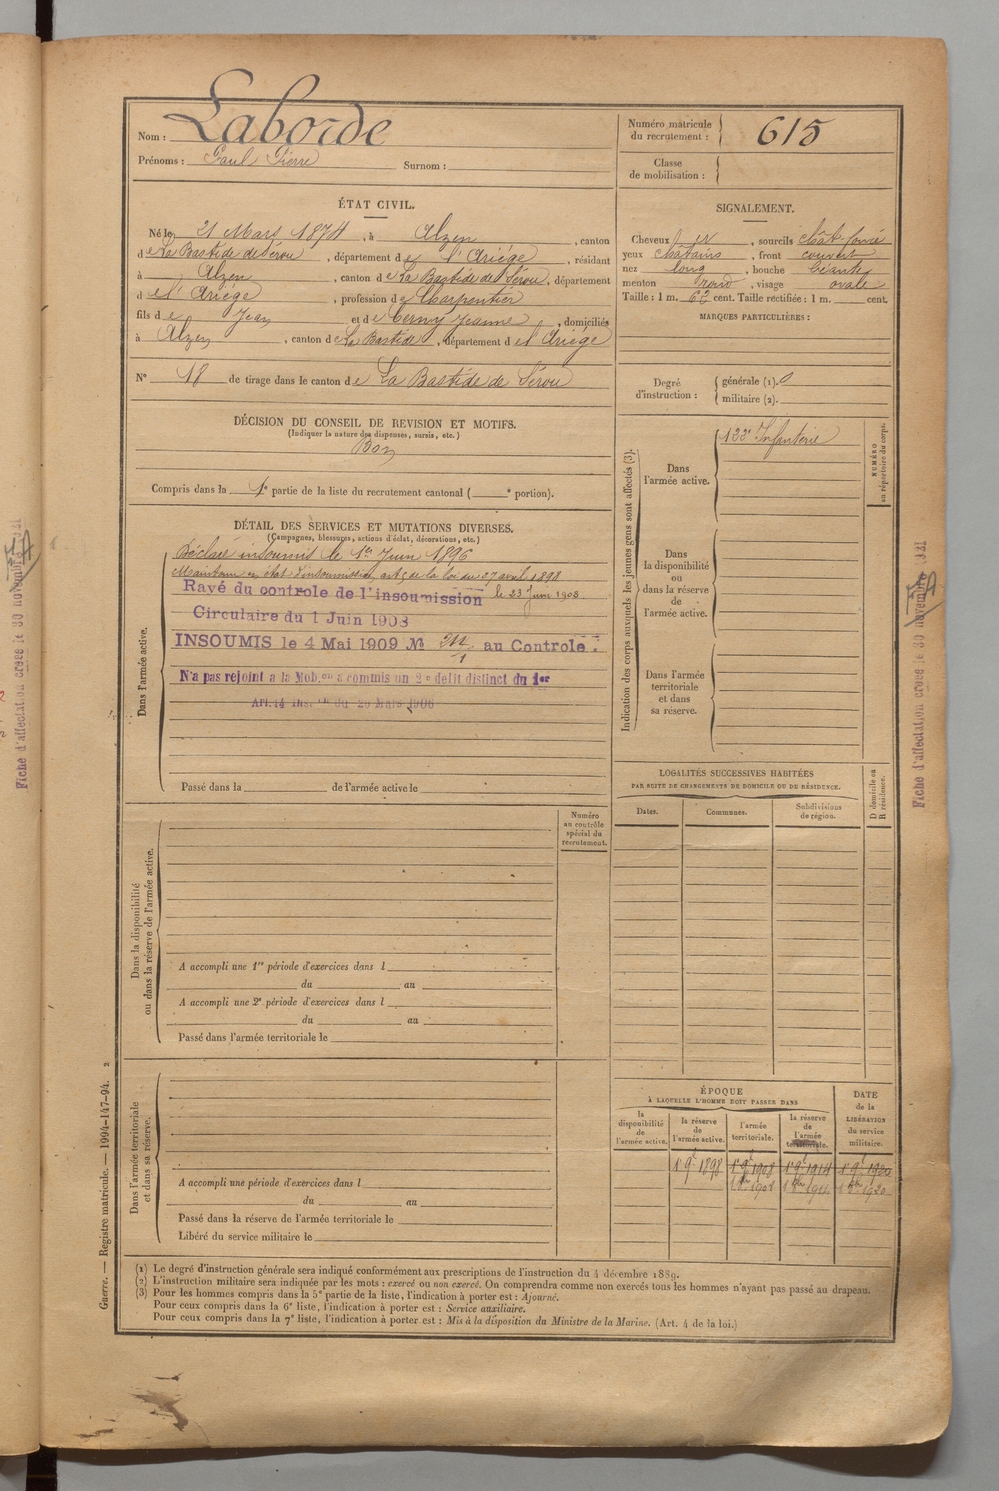 Nom : Laborde
Prénoms : Paul Pierre Surnom :
Numéro matricule
du recrutement : 615
Classe
de mobilisation :
ÉTAT CIVIL.
Né le 21 Mars 1874, à Alzen, canton
de La Bastide de Sérou, département de l'Ariége, résidant
à Alzen, canton de La Bastide de Sérou, département
de l'Ariége, profession de Charpentier
fils de Jean et de Cerny Jeanne, domiciliés
à Alzen, canton de La Bastide, département de l'Ariége
N° 18 de tirage dans le canton de La Bastide de Sérou
SIGNALEMENT.
Cheveux, sourcils chât. foncé
yeux châtains, front couvert
nez long, bouche béante
menton rond, visage ovale
Taille : 1 m. 67 cent. Taille rectifiée : 1 m. cent.
MARQUES PARTICULIÈRES :
Degré
d'instruction :
générale (1). 0
militaire (2).
DÉCISION DU CONSEIL DE REVISION ET MOTIFS.
(Indiquer la nature des dispenses, sursis, etc.)
Bon
Compris dans la 1e partie de la liste du recrutement cantonal ( e portion).
DÉTAIL DES SERVICES ET MUTATIONS DIVERSES.
(Campagnes, blessures, actions d'éclat, décorations, etc.)
Dans l'armée active.
Déclaré insoumis le 1er Juin 1896
Maintenu en état d'insoumission, art. 5 de la loi du 27 avril 1898
Rayé du controle de l'insoumission le 23 Juin 1908
Circulaire du 1 Juin 1908
INSOUMIS le 4 Mai 1909 № au Controle
N'a pas rejoint a la Mob.on a commis un 2e delit distinct du 1er
Art. 14 Inst.on du 20 Mars 1906
Passé dans la de l'armée active le
Indication des corps auxquels les jeunes gens sont affectés (3).
NUMÉRO
au répertoire du corps.
Dans
l'armée active.
122e Infanterie
Dans
la disponibilité
ou
dans la réserve
de
l'armée active.
Dans l'armée
territoriale
et dans
sa réserve.
LOCALITÉS SUCCESSIVES HABITÉES
PAR SUITE DE CHANGEMENTS DE DOMICILE OU DE RÉSIDENCE.
Dates.
Communes.
Subdivisions
de région.
D domicile ou
R résidence.
Numéro
au contrôle
spécial du
recrutement.
Dans la disponibilité
ou dans la réserve de l'armée active.
A accompli une 1re période d'exercices dans l
du au
A accompli une 2e période d'exercices dans l
du au
Passé dans l'armée territoriale le
Dans l'armée territoriale
et dans sa réserve.
A accompli une période d'exercices dans l
du au
Passé dans la réserve de l'armée territoriale le
Libéré du service militaire le
ÉPOQUE
À LAQUELLE L'HOMME DOIT PASSER DANS
DATE
de la
LIBÉRATION
du service
militaire.
la
disponibilité
de
l'armée active.
la réserve
de
l'armée active.
l'armée
territoriale.
la réserve
de
l'armée
territoriale.
1er 9e 1898 1er 9e 1908 1er 9e 1914 1er 9e 1920
(1) Le degré d'instruction générale sera indiqué conformément aux prescriptions de l'instruction du 4 décembre 1889.
(2) L'instruction militaire sera indiquée par les mots : exercé ou non exercé. On comprendra comme non exercés tous les hommes n'ayant pas passé au drapeau.
(3) Pour les hommes compris dans la 5e partie de la liste, l'indication à porter est : Ajourné.
Pour ceux compris dans la 6e liste, l'indication à porter est : Service auxiliaire.
Pour ceux compris dans la 7e liste, l'indication à porter est : Mis à la disposition du Ministre de la Marine. (Art. 4 de la loi.)
Guerre. — Registre matricule. — 1994-147-94. 2
Fiche d'affectation créée le 30 novembre 1921
Fiche d'affectation créée le 30 novembre 1921